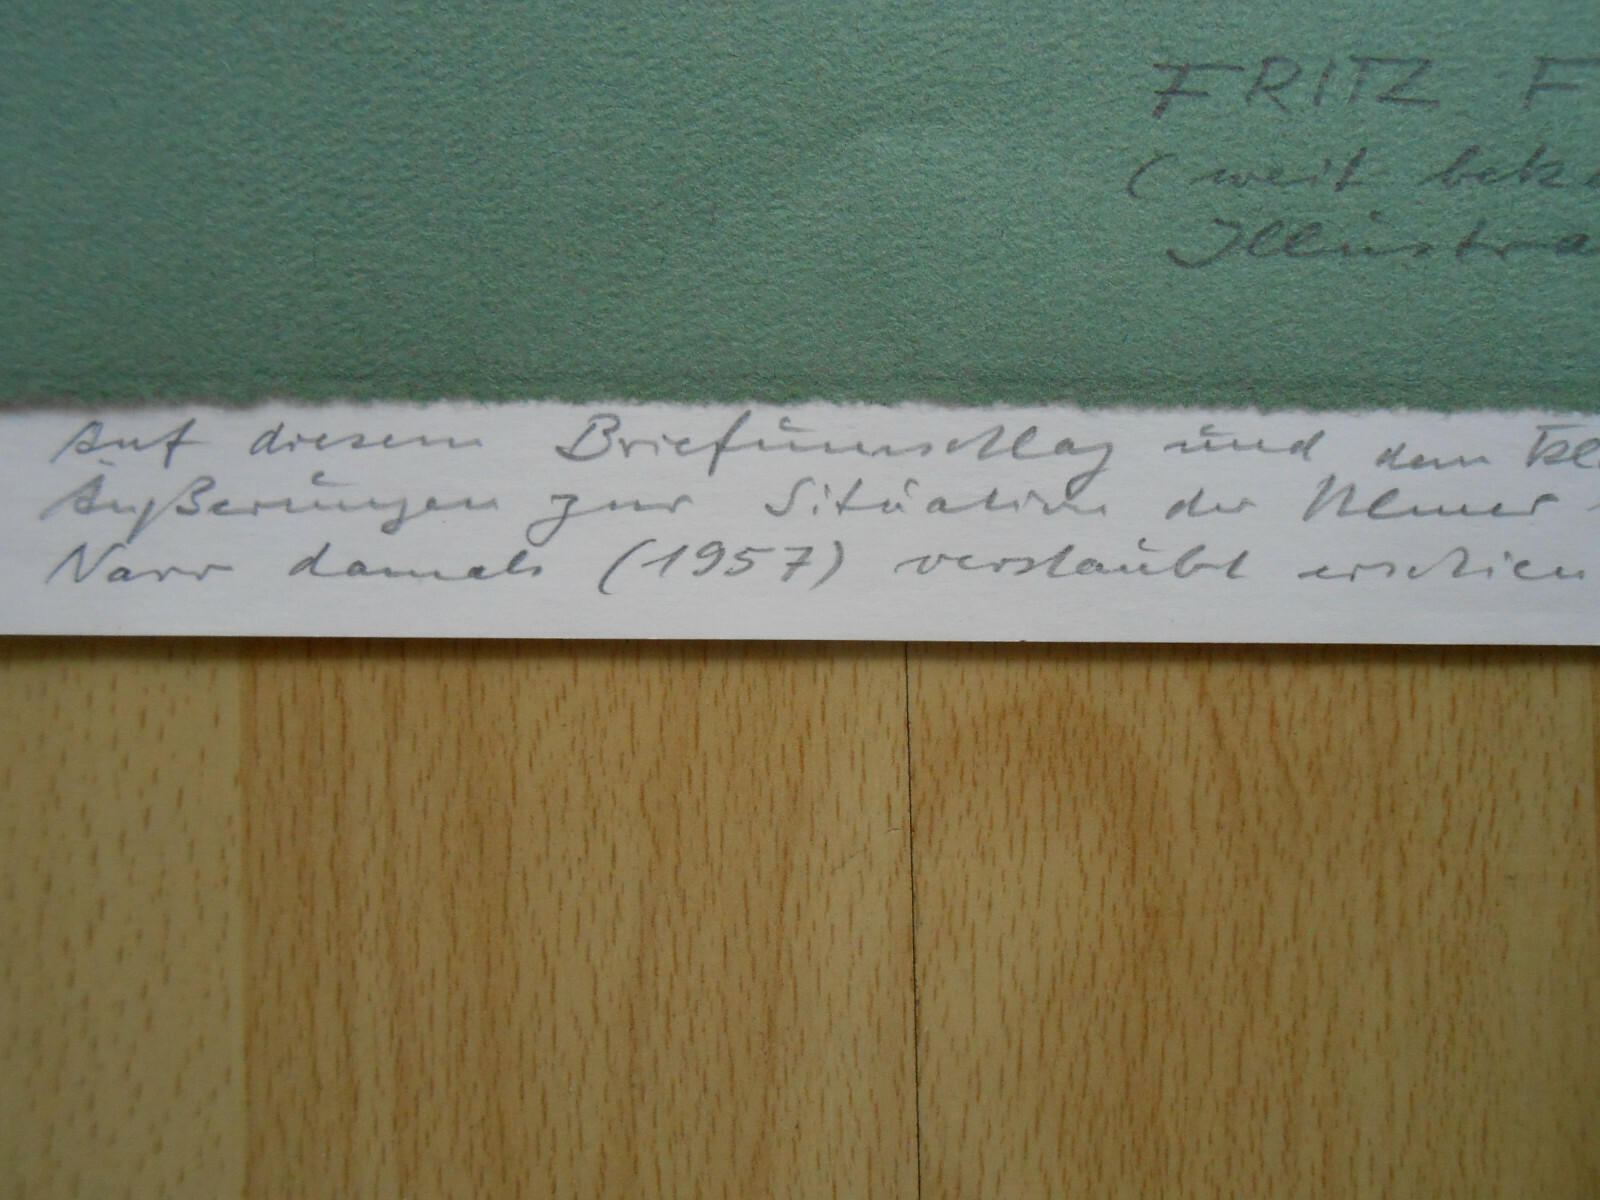 FRITZ F
(weit bek
Illustra
Auf diesem Briefumschlag und dem kl
Äußerungen zur Situation der Ulmer
Narr damals (1957) verstaubt erschien